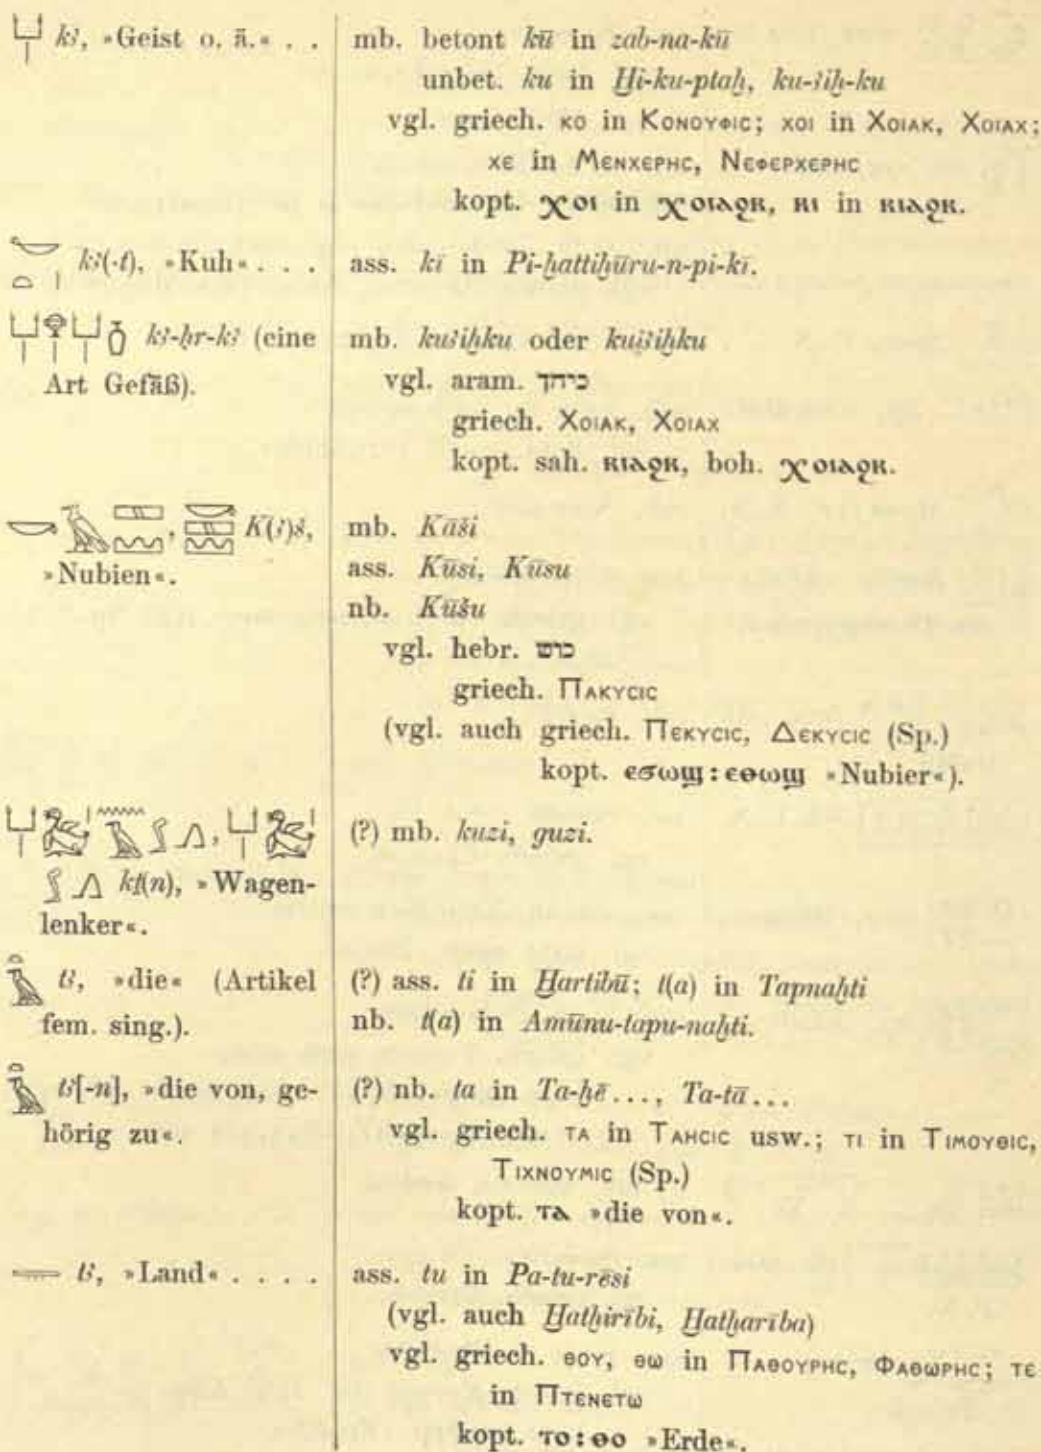 𓂓 kꜣ, »Geist o. ä.« . . mb. betont kū in zab-na-kū
unbet. ku in Ḫi-ku-ptaḫ, ku-ꜣiḫ-ku
vgl. griech. κο in Κονουφις; χοι in Χοιακ, Χοιαχ;
χε in Μενχερης, Νεφερχερης
kopt. ⲭⲟⲓ in ⲭⲟⲓⲁϩⲕ, ⲕⲓ in ⲕⲓⲁϩⲕ.
kꜣ(·t), »Kuh« . . . ass. kī in Pi-ḫattiḫūru-n-pi-kī.
kꜣ-ḥr-kꜣ (eine mb. kuꜣiḫku oder kuiꜣiḫku
Art Gefäß). vgl. aram. כיחך
griech. Χοιακ, Χοιαχ
kopt. sah. ⲕⲓⲁϩⲕ, boh. ⲭⲟⲓⲁϩⲕ.
K(ꜣ)š, mb. Kāši
»Nubien«. ass. Kūsi, Kūsu
nb. Kūšu
vgl. hebr. כוש
griech. Πακυσις
(vgl. auch griech. Πεκυσις, Δεκυσις (Sp.)
kopt. ⲉϭⲱϣ : ⲉⲑⲱϣ »Nubier«).
(?) mb. kuzi, guzi.
kṯ(n), »Wagen-
lenker«.
tꜣ, »die« (Artikel (?) ass. ti in Ḫartibū; t(a) in Tapnaḫti
fem. sing.). nb. t(a) in Amūnu-tapu-naḫti.
tꜣ[-n], »die von, ge- (?) nb. ta in Ta-ḫē..., Ta-tā...
hörig zu«. vgl. griech. τα in Ταησις usw.; τι in Τιμουθις,
Τιχνουμις (Sp.)
kopt. ⲧⲁ »die von«.
tꜣ, »Land« . . . . ass. tu in Pa-tu-rēsi
(vgl. auch Ḫatḫirībi, Ḫatḫarība)
vgl. griech. θου, θω in Παθουρης, Φαθωρης; τε
in Πτενετω
kopt. ⲧⲟ : ⲑⲟ »Erde«.